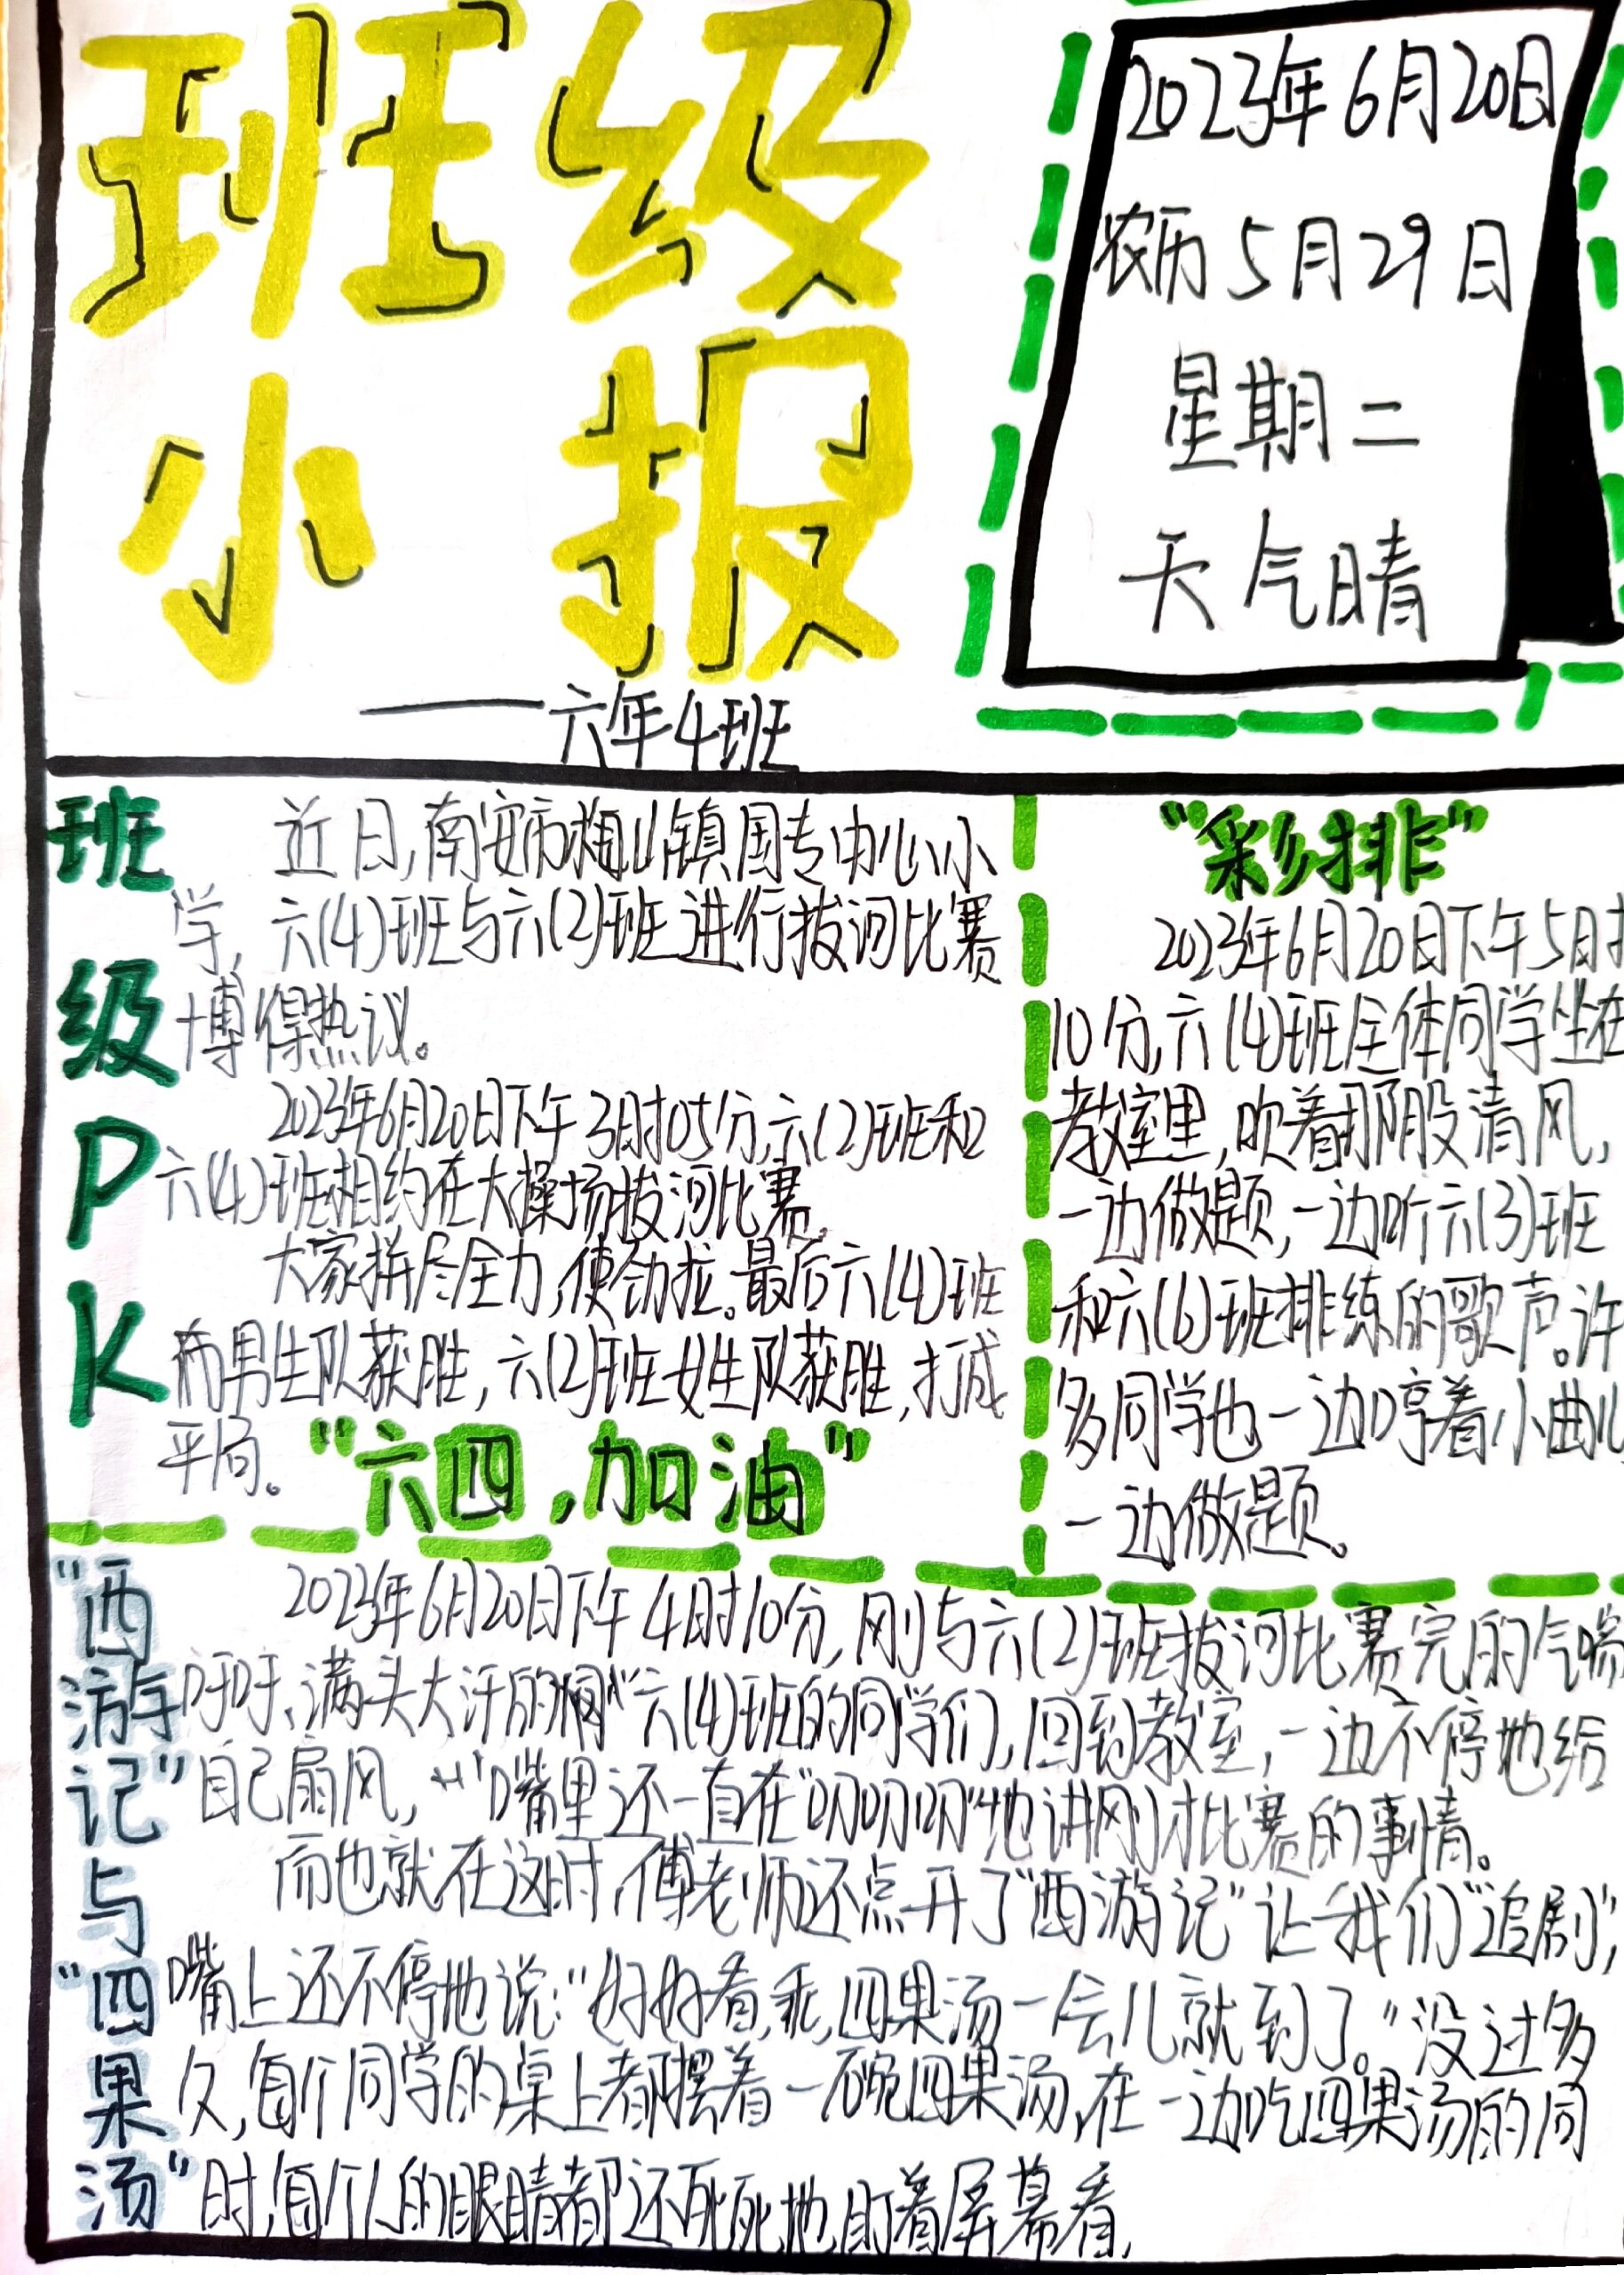 班级
小报
——六年4班
2023年6月20日
农历5月29日
星期二
天气晴
班级PK
近日,南安市梅山镇国专中心小
学,六(4)班与六(2)班进行拔河比赛
博得热议。
2023年6月20日下午3时05分,六(2)班和
六(4)班相约在大操场拔河比赛,
大家拼尽全力,使劲拉。最后六(4)班
男生队获胜,六(2)班女生队获胜,打成
平局。
“六四,加油”
“彩排”
2023年6月20日下午5时
10分,六(4)班全体同学坐在
教室里,吹着那股清风,
一边做题,一边听六(3)班
和六(6)班排练的歌声。许
多同学也一边哼着小曲儿
一边做题。
“西游记”与“四果汤”
2023年6月20日下午4时10分,刚与六(2)班拔河比赛完的气喘
吁吁、满头大汗的六(4)班的同学们,回到教室,一边不停地给
自己扇风,嘴里还一直在“叨叨叨”地讲刚才比赛的事情。
而也就在这时,傅老师还点开了“西游记”让我们“追剧”,
嘴上还不停地说:“好好看,乖,四果汤一会儿就到了。”没过多
久,每个同学的桌上都摆着一碗四果汤,在一边吃四果汤的同
时,每个人的眼睛都还死死地盯着屏幕看,